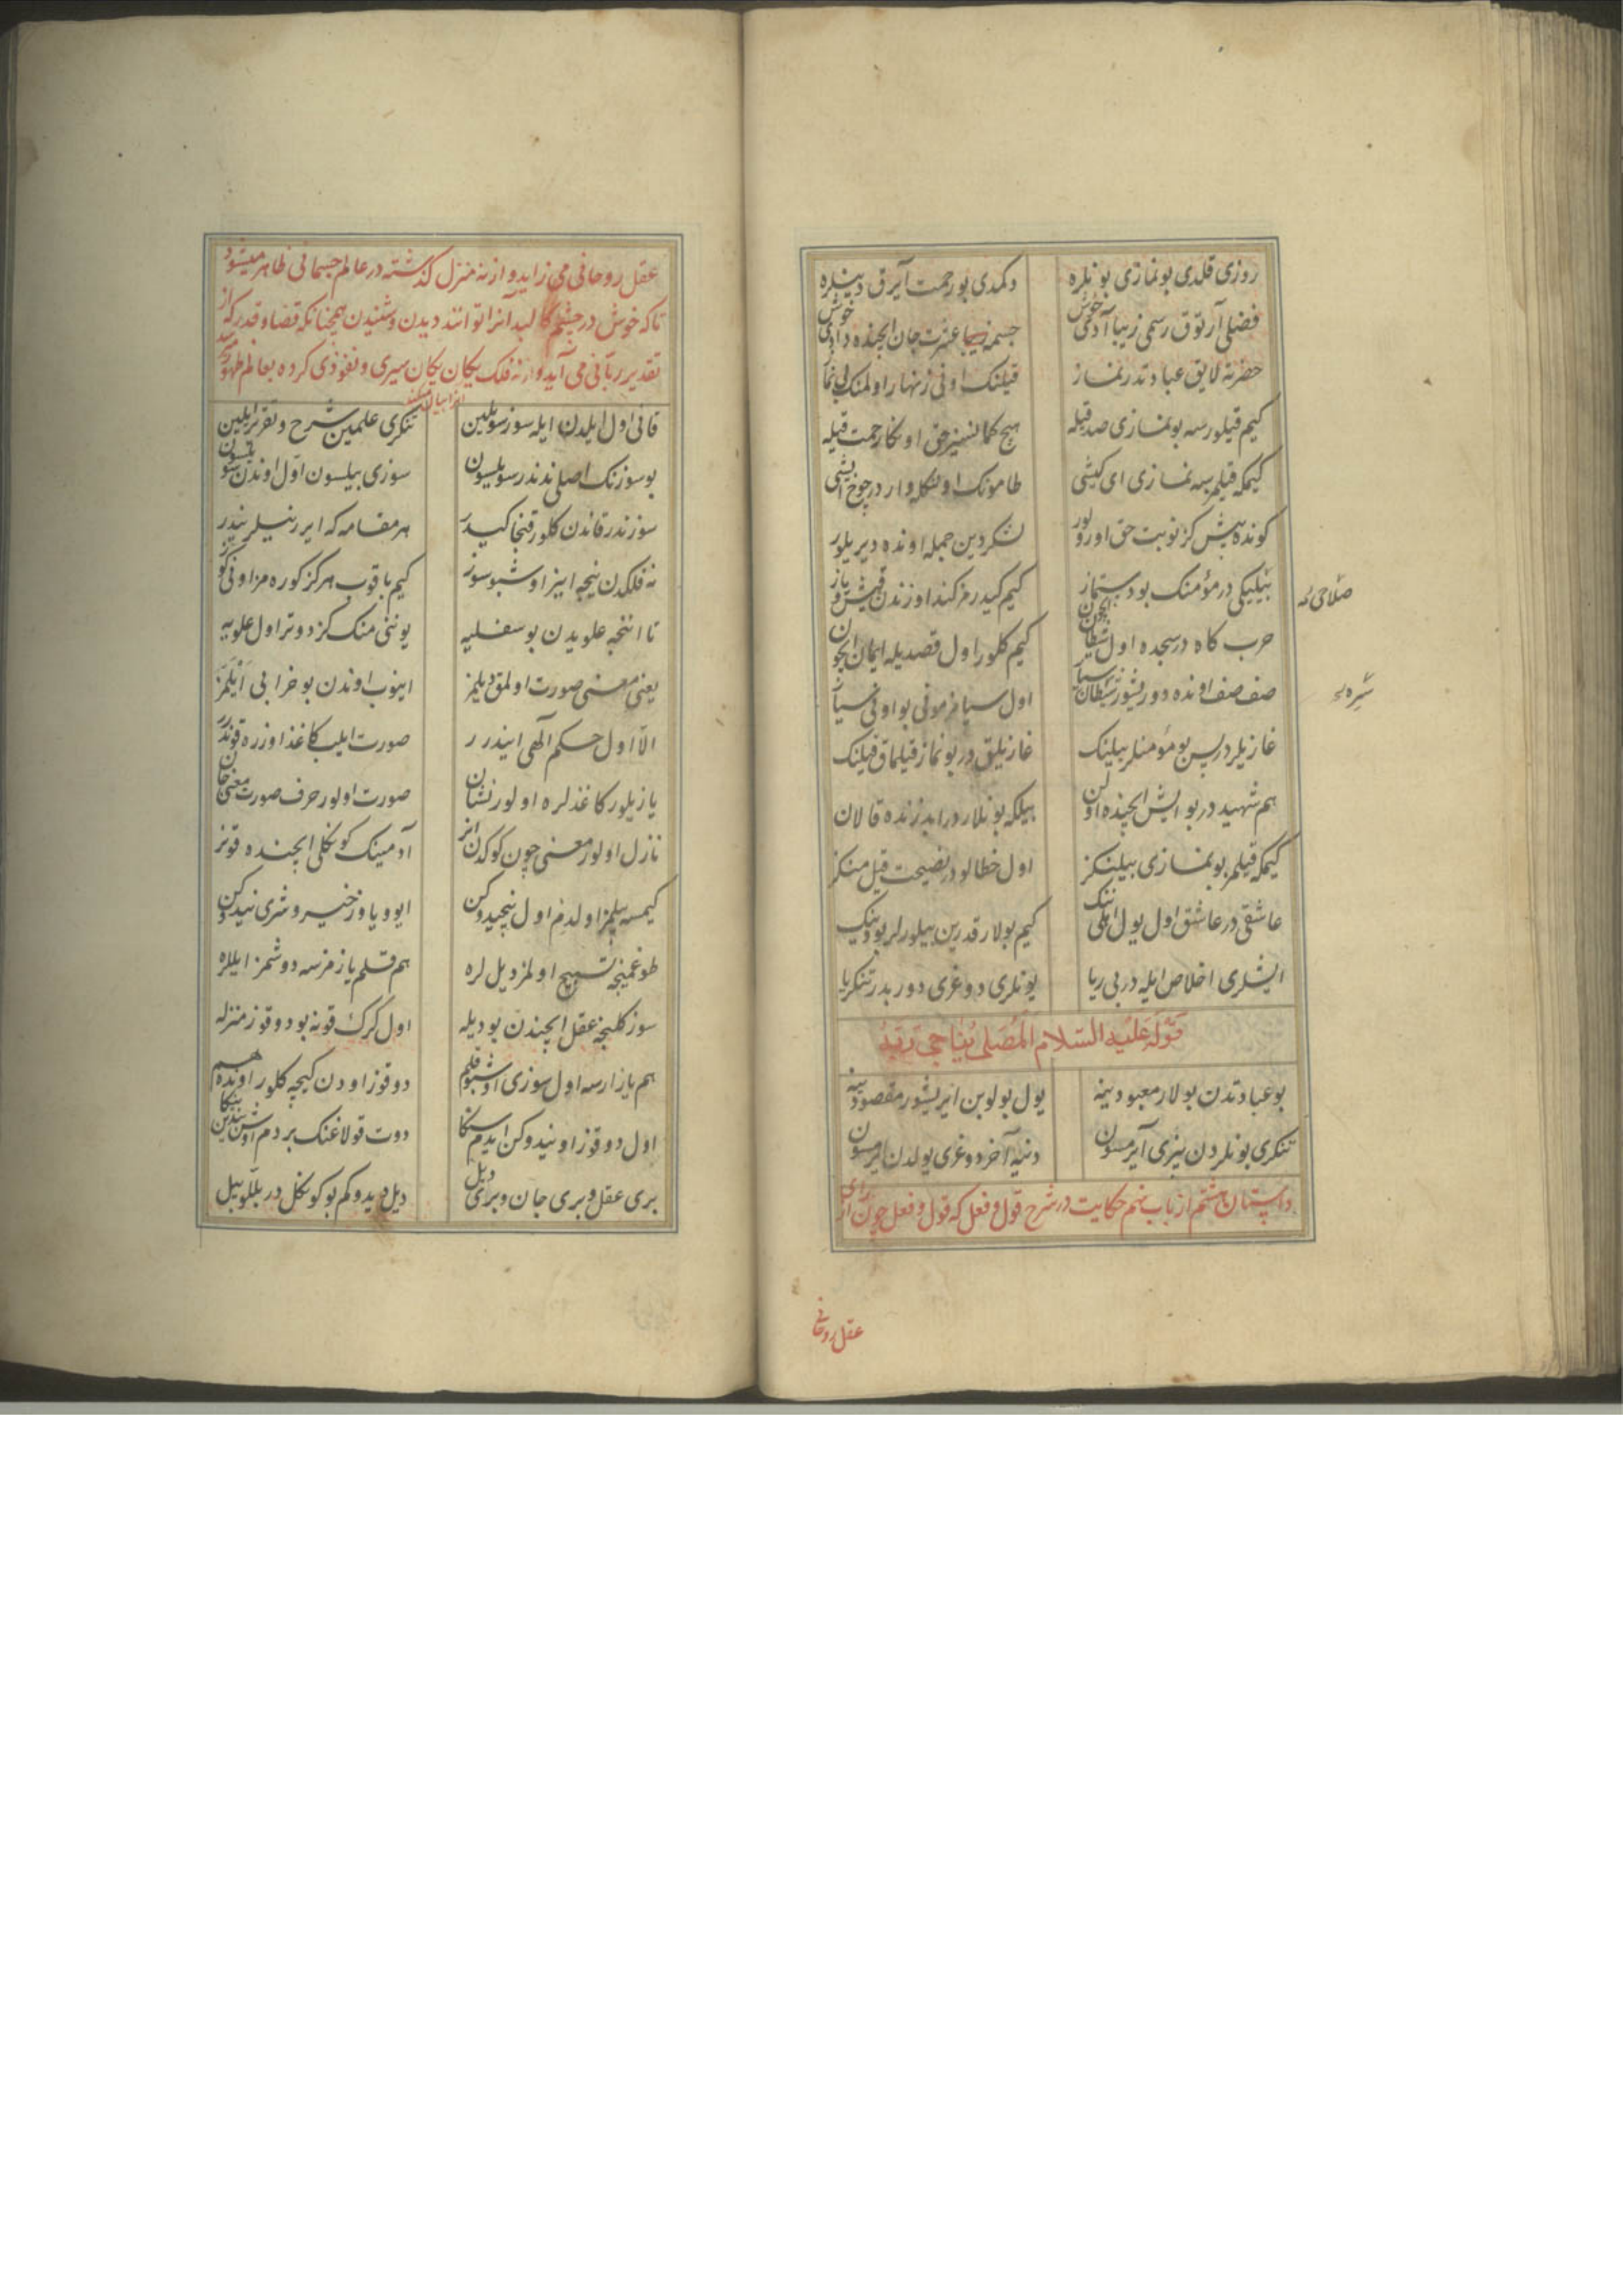 روزی قلدی بو نمازی بونلره دکمدی بو رحمت آیرق دینلره
فضلی آرتوق رسمی زیبا آدی خوش جسمه زیبا عشرت جان ایچنده دادی خوش
حضرته لایق عبادتدر نماز قیلنک اونی زنهار اولمنک بی نماز
کیم قیلورسه بو نمازی صدقیله هیچ کمانسز حق اوکا رحمت قیله
کیمکه قیلمزسه نمازی ای کیشی طامونک اونکله واردر چوخ ایشی
کونده بیش کز نوبت حق اورولور لشکر دین جمله اونده دیریلور
بیلیکی در مؤمنک بو دستماز کیم کیدرمز کنداوزندن قیش و یاز
حرب کاه در سجده اول شیطان ایچون کیم کلور اول قصدیله ایمان ایچون
صف صف اونده دوریشور شیطان سیا اول سیا فرمونی بو اونی سیا
غازیلر در پس بو مؤمنلر بیلینک غازیلیق در بو نماز قیلماق قیلینک
هم شهید در بو ایش ایچنده اولن بیلکه بونلاردر ابد زنده قالان
کیمکه قیلمز بو نمازی بیلینکز اول خطالودر نصیحت قیل منکز
عاشقی در عاشق اول یول ایلی نینک کیم بولار قدرین بیلورلر بو دینک
ایشلری اخلاص ایله در بی ریا یونلری دوغری دوربدر تنکریا
قوله علیه السلام المصلی یناجی ربه
بو عبادتدن بولار معبودینه یول بولوبن ایریشور مقصودینه
تنکری بونلردن بیزی آیرمسون دنیه آخر دوغری یولدن ایرمسون
داستان هشتم از باب نهم حکایت در شرح قول و فعل که قول و فعل چون از رای
عقل روحانی
صلاحی له
شیره له
عقل روحانی می زاید و از نه منزل کذشته در عالم جسمانی ظاهر میشود
تا که خوش در چشم کالبد آنرا توانند دیدن و شنیدن همچنانکه قضا و قدر که از
تقدیر ربانی می آید و از نه فلک یکان یکان سیری و نفوذی کرده بعالم ظهور میرسد
قانی اول ایلدن ایله سوز سویلین تنکری علمین شرح و تقریر ایلین
بو سوزنک اصلی ندندر سویلسون سوزی بیلسون اول اوندن سویلسون
سوز ندر قاندن کلور قنجا کیدر هر مقامه که ایرر نیلر نیدر
نه فلکدن نیجه اینر اوشبو سوز کیم باقوب هرکز کوره مز اونی کوز
تا اننجه علویدن بو سفلیه یونی منک کز دوتر اول علویه
یعنی معنی صورت اولمق دیلمز اینوب اوندن بو خرابی ایلمز
الا اول حکم الهی ایندرر صورت ایلیب کاغذ اوزره قوندرر
یازیلور کاغذلره اولور نشان صورت اولور حرف صورت معنی جان
نازل اولور معنی چون کوکدن انر آدمینک کونکلی ایچنده قونر
کیمسه بیلمز اولدم اول نیجیدوکن ایو و یاوز خیر و شری نیدوکن
طوغمینجه تسبیح اولمز دیل لره هم قلم یازمزسه دوشمز ایللره
سوز کلنجه عقل ایچندن بو دیله اول کرک قونه بو دوقوز منزله
هم یازارسه اول سوزی اوشبو قلم دوقوز اودن کیچه کلور اونده هم
اول دوقوز اونیدوکن ایدم سنکا دوت قولاغنک بر دم اوشبندین ینکا
بری عقل و بری جان و بری دیل دیل دیدوکم بو کونکل در بللو بیل